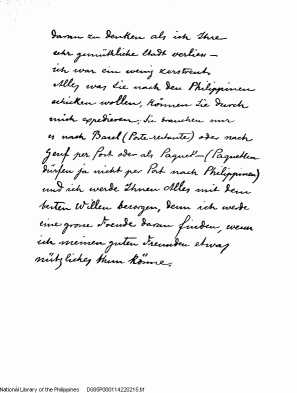 daran zu denken als ich Ihre
sehr gemüthliche Stadt verliess –
ich war ein wenig zerstreut.
Alles was Sie nach den Philippinen
schicken wollen, können Sie durch
mich expedieren; Sie brauchen nur
es nach Basel (Poste-restante) oder nach
Genf per Post oder als Paquet – (Paquetten
dürfen ja nicht per Post nach Philippinen)
und ich werde Ihnen Alles mit dem
besten Willen besorgen, denn ich werde
eine grosse Freude daran finden, wenn
ich meinen guten Freunden etwas
nützliches thun könne.
National Library of the Philippines